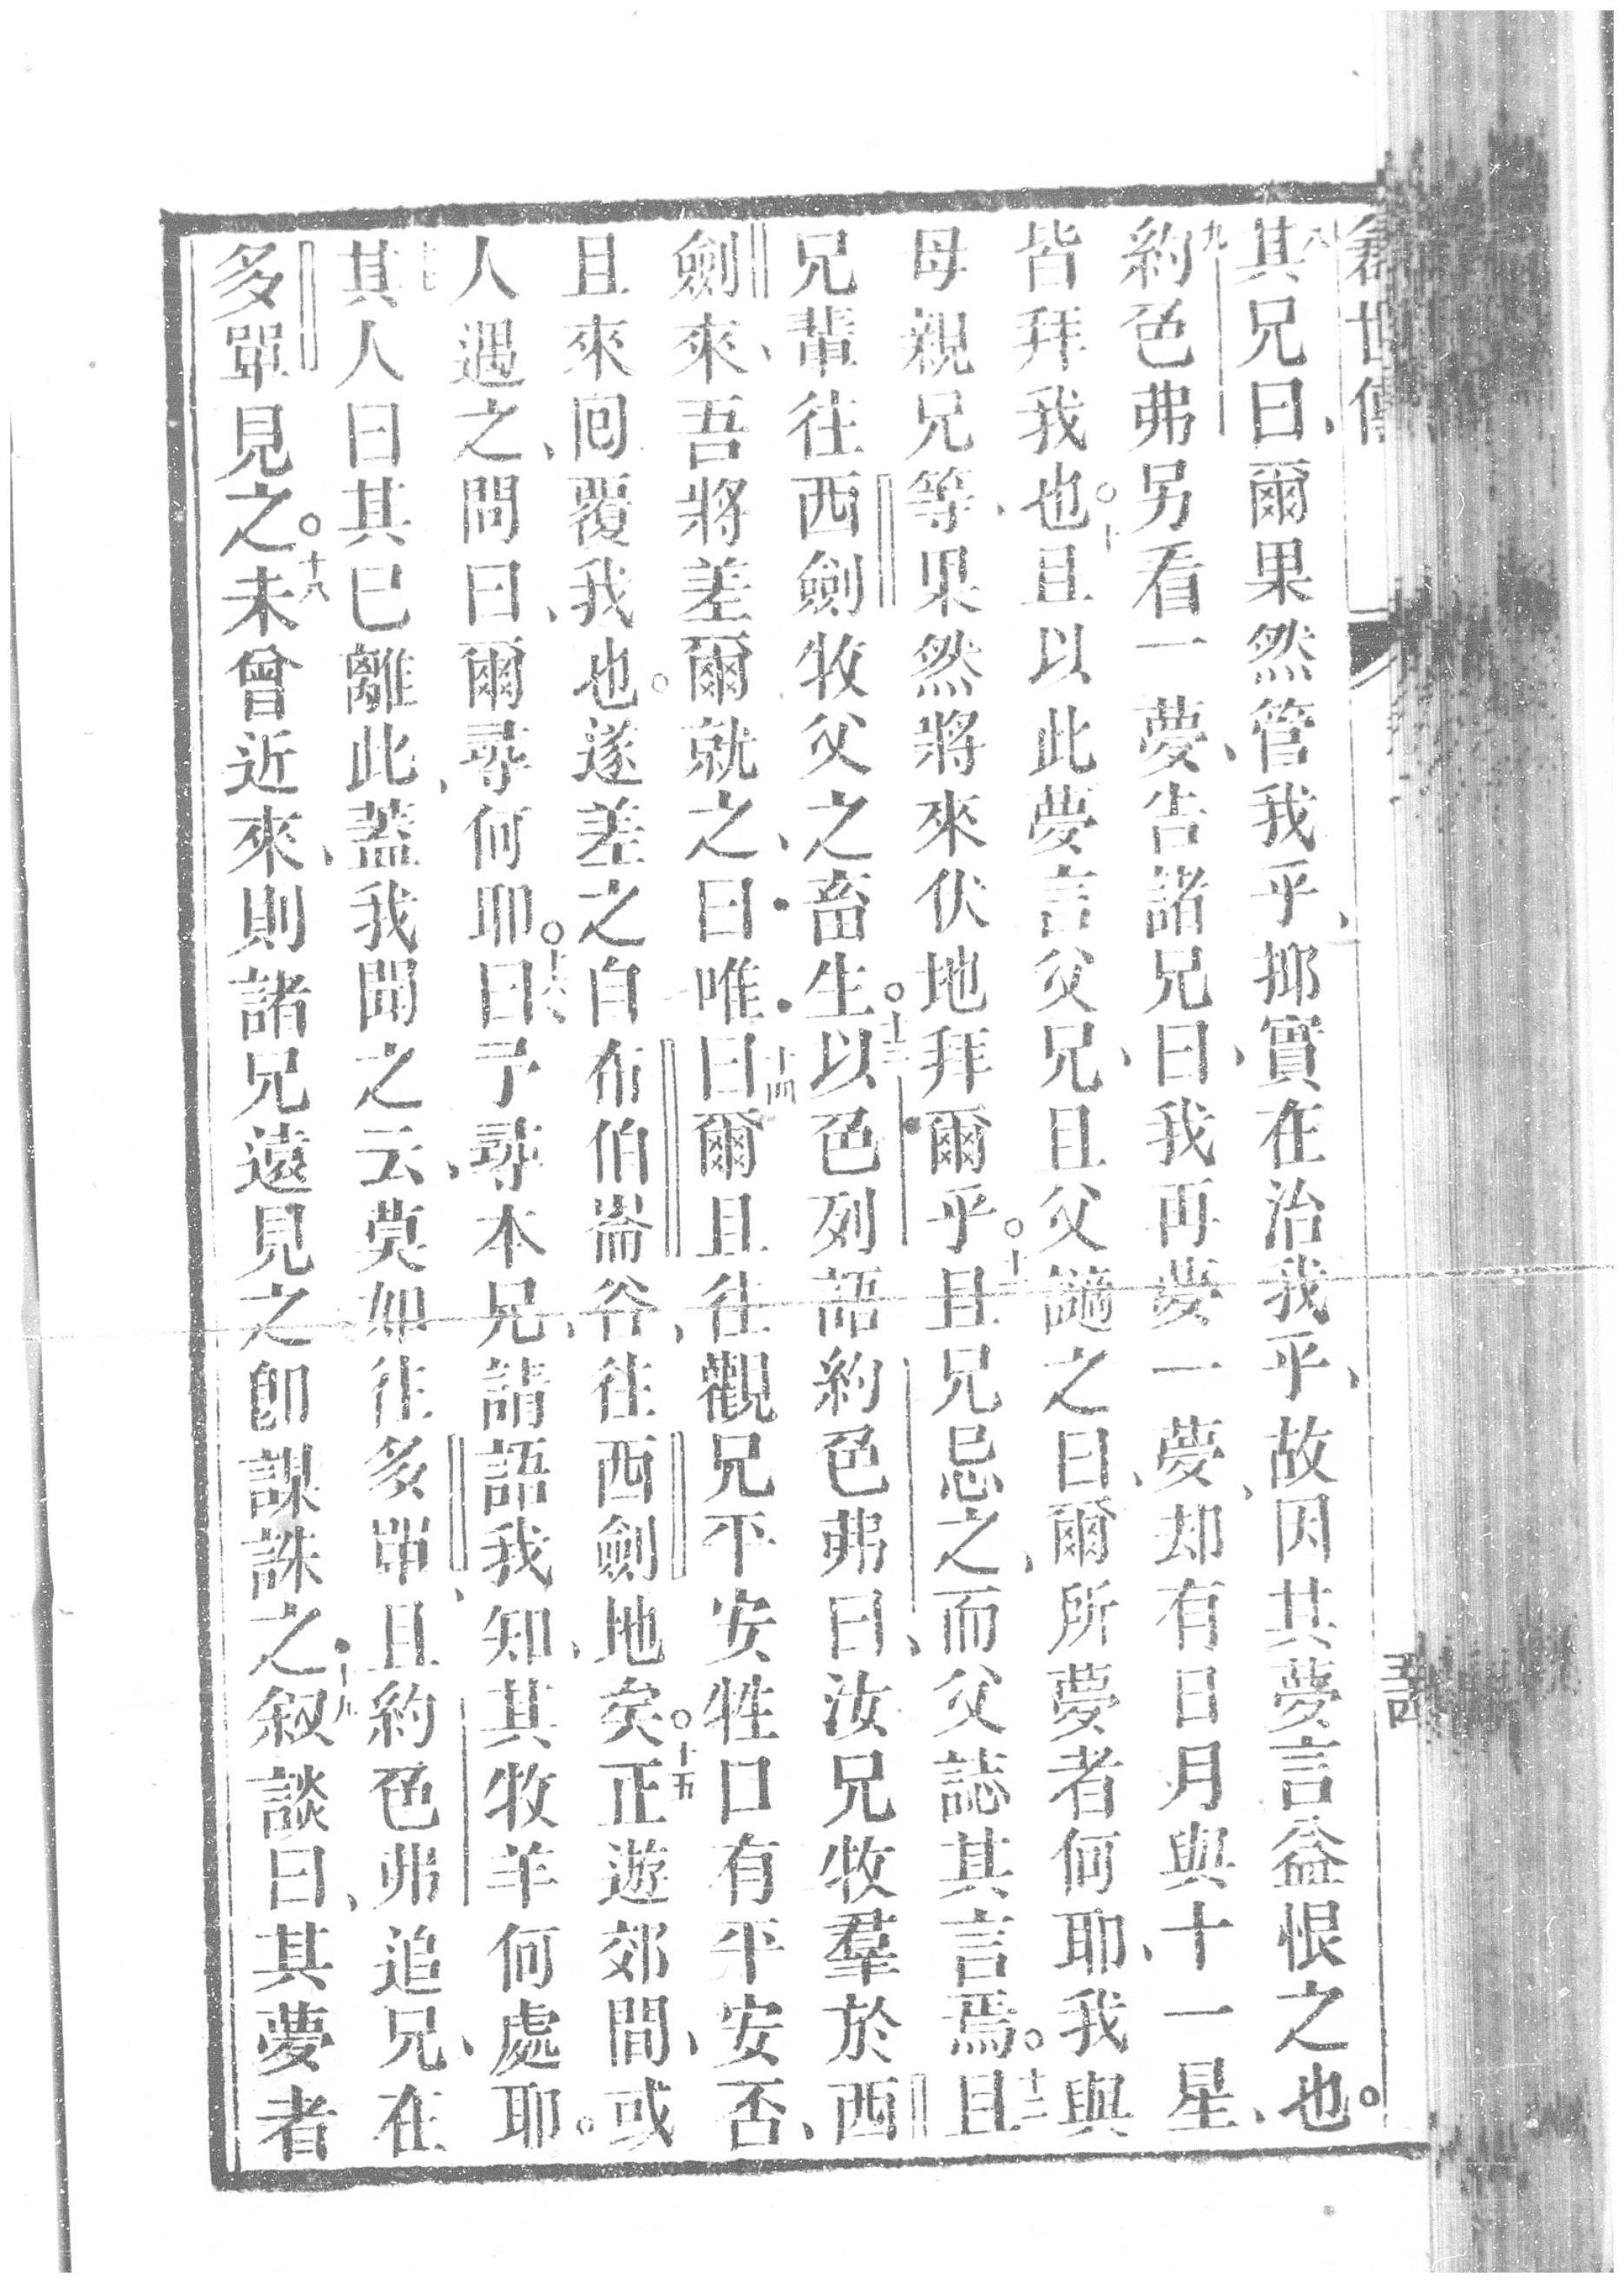 創世傳
八其兄曰、爾果然管我乎、抑實在治我乎、故因其夢言益恨之也。
九約色弗另看一夢、告諸兄、曰我再夢一夢、却有日月與十一星、
皆拜我也。十且以此夢言父兄、且父譴之曰、爾所夢者何耶、我與
母親兄等、果然將來伏地拜爾乎。十一且兄忌之、而父誌其言焉。十二且
兄輩往西劍牧父之畜生。十三以色列語約色弗曰、汝兄牧羣於西
劍來、吾將差爾就之、曰唯。十四曰爾且往觀兄平安牲口有平安否、
且來回覆我也。遂差之自希伯崙谷、往西劍地矣。十五正遊郊間、或
人遇之、問曰、爾尋何耶。十六曰予尋本兄、請語我知、其牧羊何處耶。
十七其人曰其已離此、蓋我聞之云、莫如往多單、且約色弗追兄、在
多單見之。十八未曾近來、則諸兄遠見之卽謀誅之。十九叙談曰、其夢者